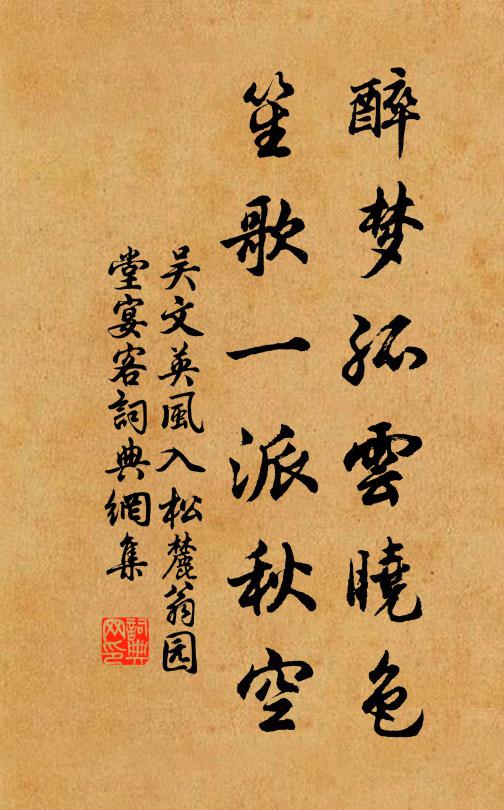 醉梦孤雲曉色
笙歌一派秋空
吴文英風入松麓翁园
堂宴客詞典網集
詞典网印